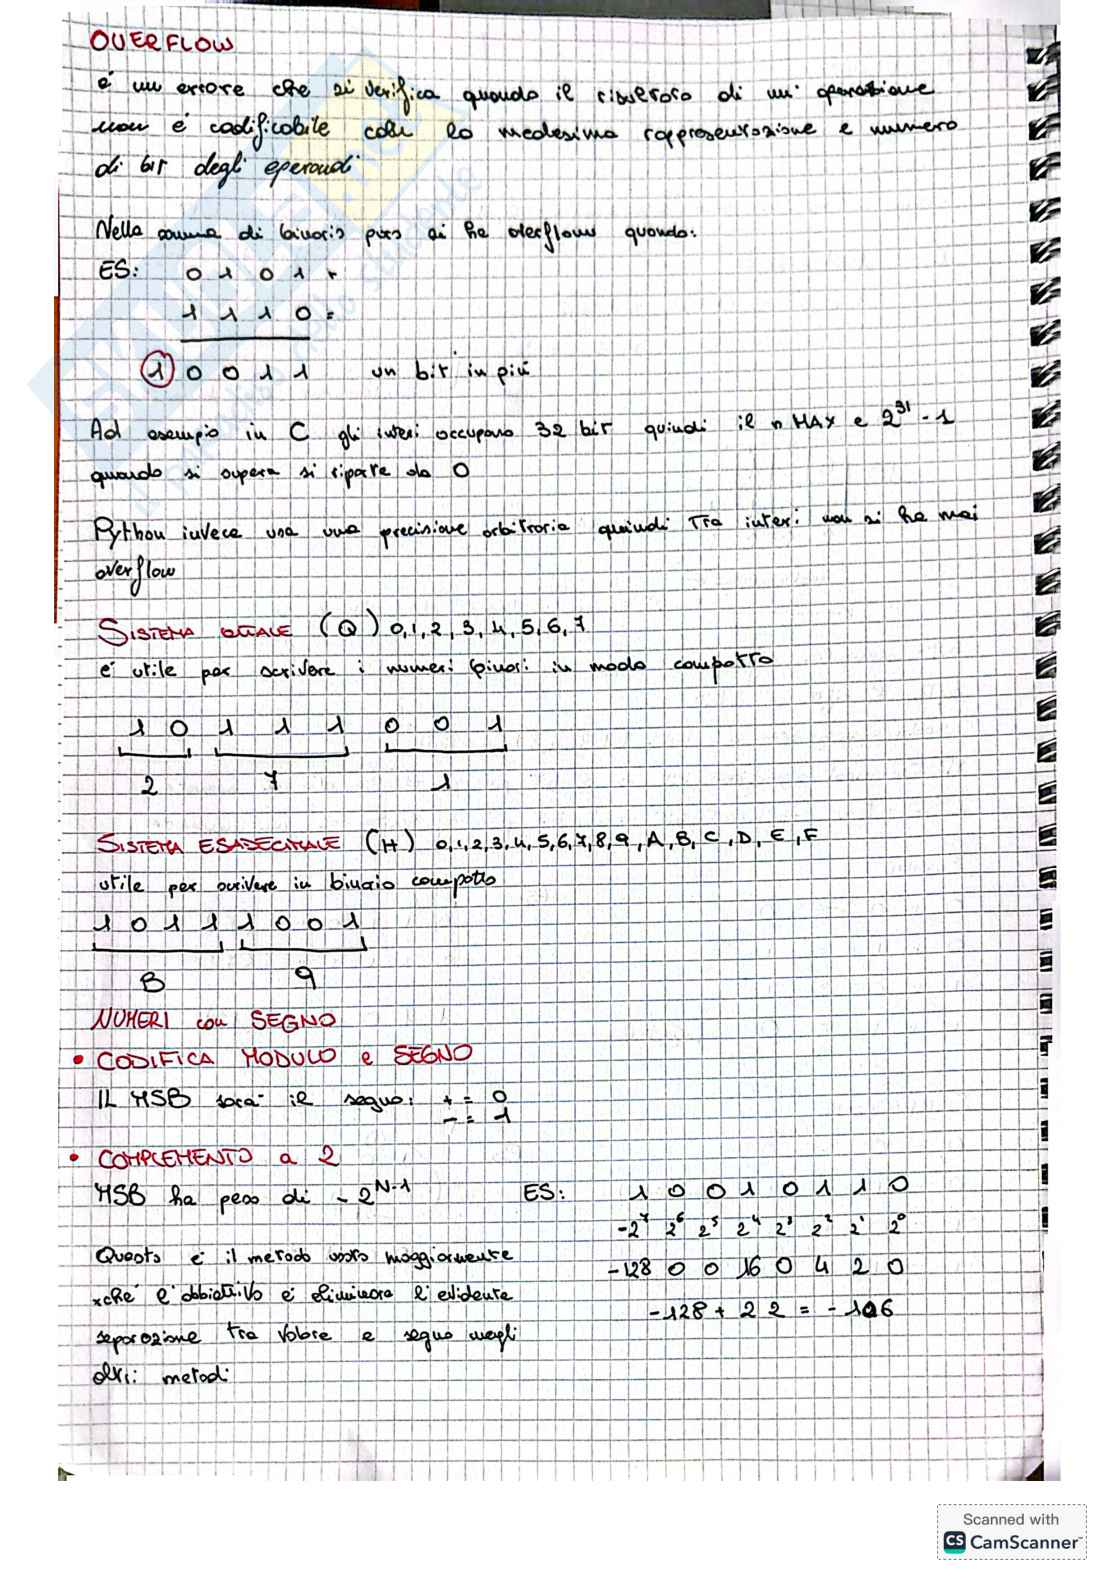 OVERFLOW
é un errore che si verifica quando il risultato di un' operazione
non é codificabile con la medesima rappresentazione e numero
di bit degli operandi
Nella somma di binario puro si ha overflow quando:
ES: 0 1 0 1 +
1 1 1 0 =
1 0 0 1 1 un bit in piú
Ad esempio in C gli interi occupano 32 bit quindi il n MAX e 2^31 - 1
quando si supera si riparte da 0
Python invece usa una precisione arbitraria quindi Tra interi non si ha mai
overflow
SISTEMA OTTALE (Q) 0,1,2,3,4,5,6,7
é utile per scrivere i numeri binari in modo compatto
1 0 1 1 1 0 0 1
2 7 1
SISTEMA ESADECIMALE (H) 0,1,2,3,4,5,6,7,8,9,A,B,C,D,E,F
utile per scrivere in binario compatto
1 0 1 1 1 0 0 1
B 9
NUMERI con SEGNO
• CODIFICA MODULO e SEGNO
IL MSB sará il segno: + = 0
- = 1
• COMPLEMENTO a 2
MSB ha peso di - 2^N-1 ES: 1 0 0 1 0 1 1 0
-2^7 2^6 2^5 2^4 2^3 2^2 2^1 2^0
Questo é il metodo usato maggiormente
-128 0 0 16 0 4 2 0
xché l'obbiettivo é eliminare l'evidente
-128 + 22 = -106
separazione tra valore e segno negli
altri metodi
Scanned with
CS CamScanner